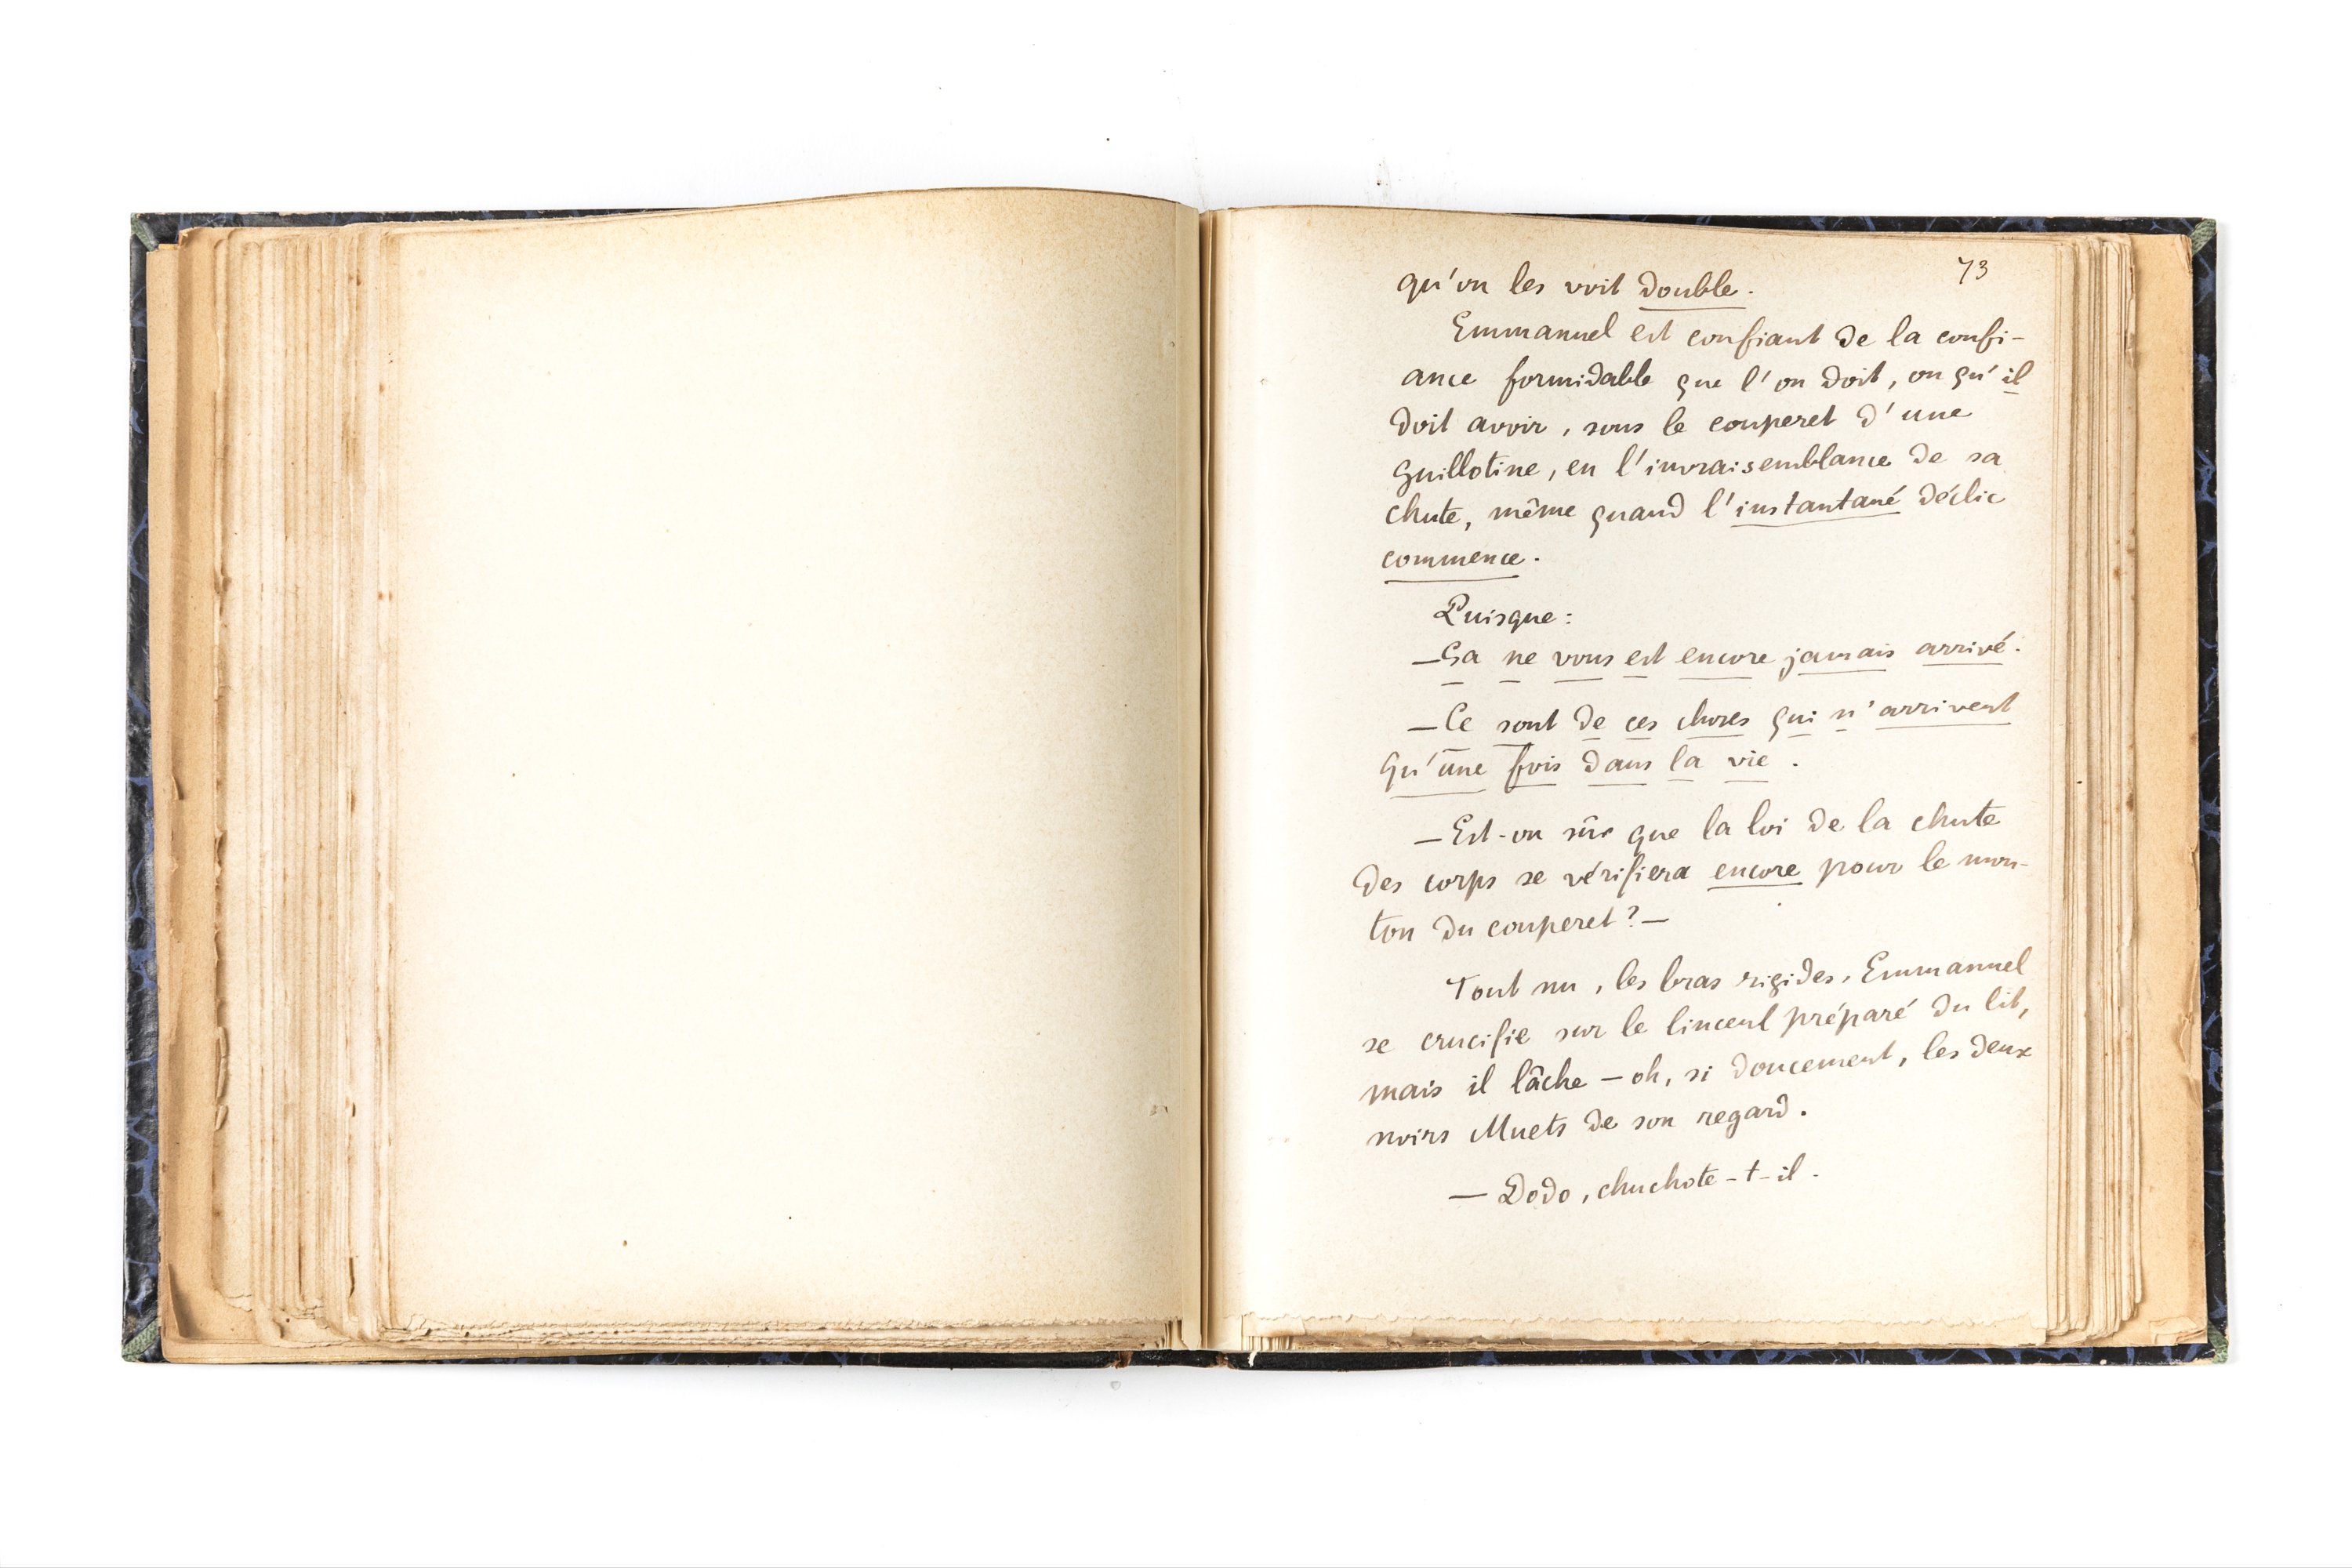 73
qu'on les voit double.
Emmanuel est confiant de la confi-
ance formidable que l'on doit, ou qu'il
doit avoir, sous le couperet d'une
guillotine, en l'invraisemblance de sa
chute, même quand l'instantané déclic
commence.
Puisque:
—Ça ne vous est encore jamais arrivé.
—Ce sont de ces choses qui n'arrivent
qu'une fois dans la vie.
—Est-on sûr que la loi de la chute
des corps se vérifiera encore pour le mou-
ton du couperet?—
Tout nu, les bras rigides, Emmanuel
se crucifie sur le linceul préparé du lit,
mais il lâche — oh, si doucement, les deux
noirs Muets de son regard.
— Dodo, chuchote-t-il.